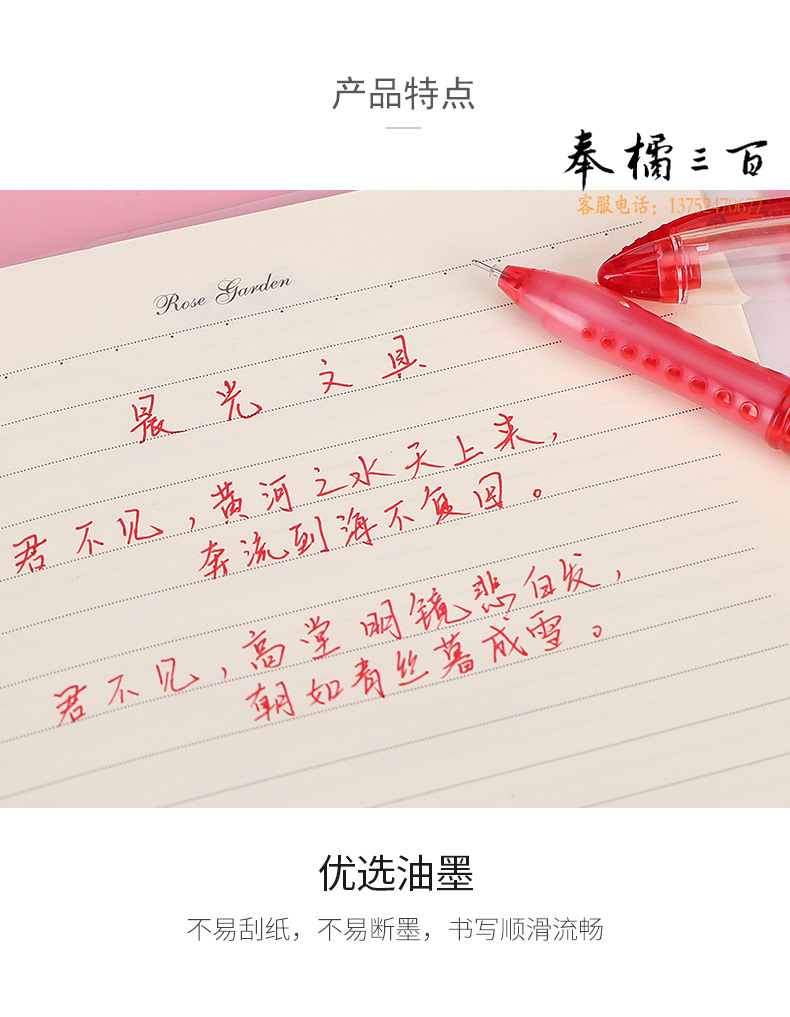 产品特点
奉橘三百
客服电话：13752470677
Rose Garden
晨光文具
君不见，黄河之水天上来，
奔流到海不复回。
君不见，高堂明镜悲白发，
朝如青丝暮成雪。
优选油墨
不易刮纸，不易断墨，书写顺滑流畅